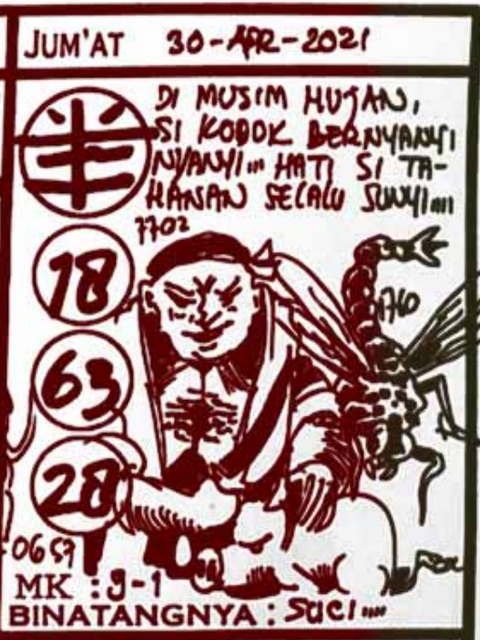 JUM'AT 30-APR-2021
DI MUSIM HUJAN,
SI KODOK BERNYANYI
NYANYI... HATI SI TA-
HANAN SELALU SUNYI....
7702
羊
18
1760
63
28
0657
MK : 9-1
BINATANGNYA : Suci....